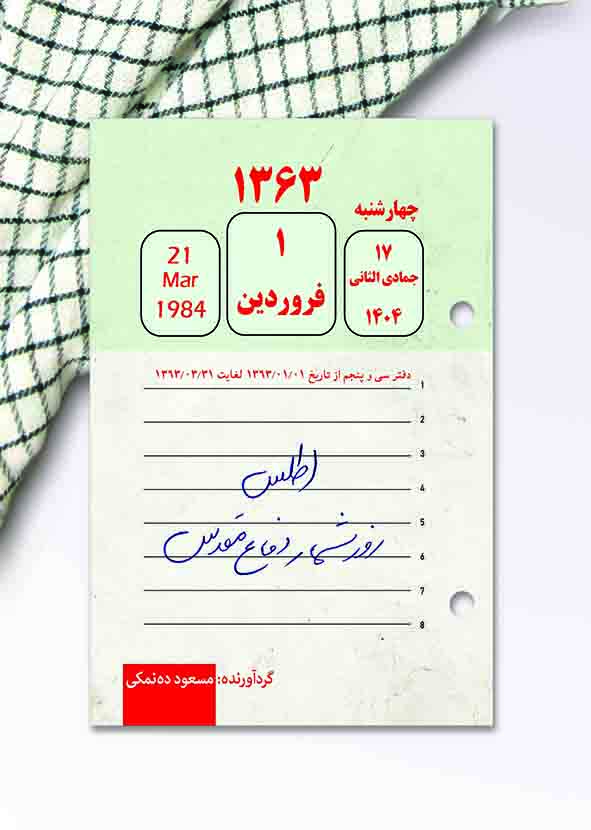 ۱۳۶۳
چهارشنبه
۱۷
جمادی الثانی
۱۴۰۴
۱
فروردین
21
Mar
1984
دفتر سی و پنجم از تاریخ ۱۳۶۳/۰۱/۰۱ لغایت ۱۳۶۳/۰۳/۳۱
1
2
3
اطلس
4
5
روزشمار دفاع مقدس
6
7
8
گردآورنده: مسعود ده‌نمکی